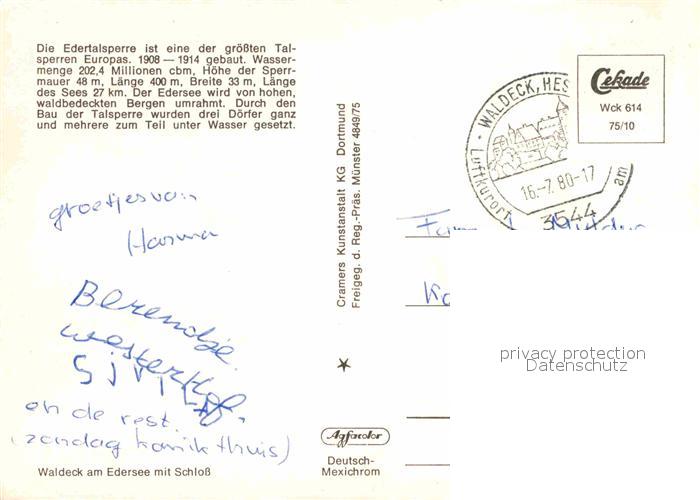 Die Edertalsperre ist eine der größten Tal-
sperren Europas. 1908 — 1914 gebaut. Wasser-
menge 202,4 Millionen cbm, Höhe der Sperr-
mauer 48 m, Länge 400 m, Breite 33 m, Länge
des Sees 27 km. Der Edersee wird von hohen,
waldbedeckten Bergen umrahmt. Durch den
Bau der Talsperre wurden drei Dörfer ganz
und mehrere zum Teil unter Wasser gesetzt.
groetjes van
Harma
Berendje
westerhof.
en de rest.
(zondag kom ik thuis)
Waldeck am Edersee mit Schloß
Cramers Kunstanstalt KG Dortmund
Freigeg. d. Reg.-Präs. Münster 4849/75
Agfacolor
Deutsch-
Mexichrom
WALDECK, HES
Luftkurort
am
16.-7.80-17
3544
Cekade
Wck 614
75/10
Fam
privacy protection
Datenschutz